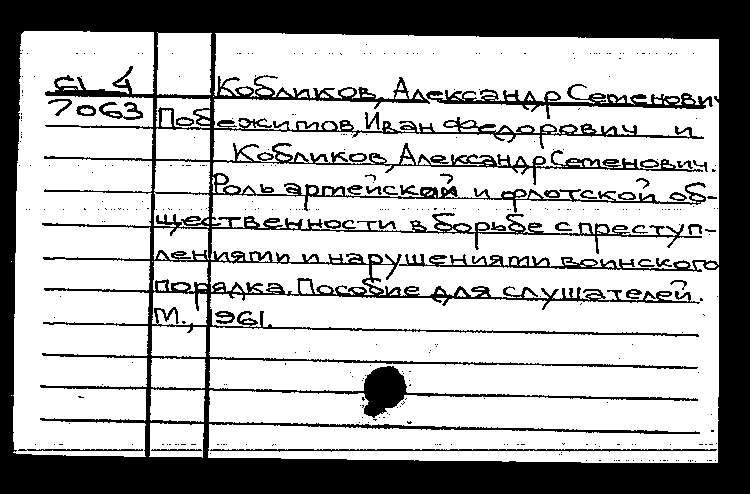 Кобликов, Александр Семенович
7063 Побежимов, Иван Федорович и
Кобликов, Александр Семенович.
Роль армейской и флотской об-
щественности в борьбе с преступ-
лениями и нарушениями воинского
порядка. Пособие для слушателей.
М., 1961.